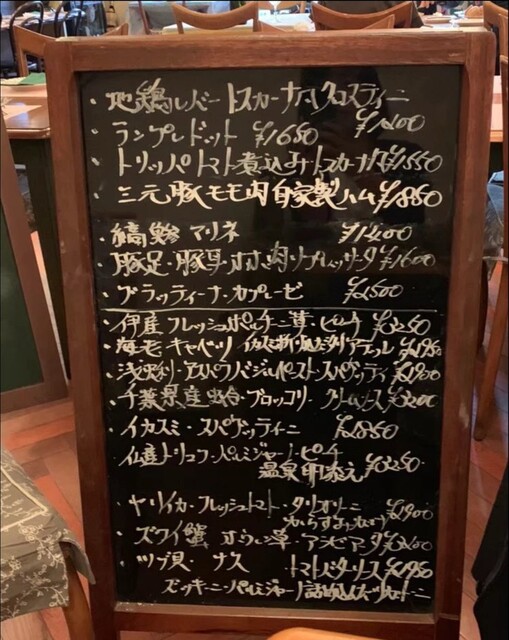 ・地鶏レバートスカーナ風クロスティーニ
・ランプレドット ¥1650 ¥1200
・トリッパトマト煮込みトスカーナ風 ¥1550
・三元豚モモ肉自家製ハム ¥1850
・縞鯵マリネ ¥1400
・豚足・豚耳・ホホ肉ソプレッサータ ¥1600
・ブラッティーナ・カプレーゼ ¥2500
・伊産フレッシュポルチーニ茸・ピーチ ¥3250
・海老・キャベツ
・浅利・アスパラバジルペースト・スパゲッティ ¥1900
・千葉県産蛤・ブロッコリー・
・イカスミ・スパゲッティーニ ¥1850
・仏産トリュフ・パルミジャーノ・ピーチ
温泉卵添え ¥3250
・ヤリイカ・フレッシュトマト・タリオリーニ
からすみ ¥1900
・ズワイ蟹 ホウレン草・
・ツブ貝・ナス トマトバターソース ¥1950
ズッキーニ・パルミジャーノ詰め